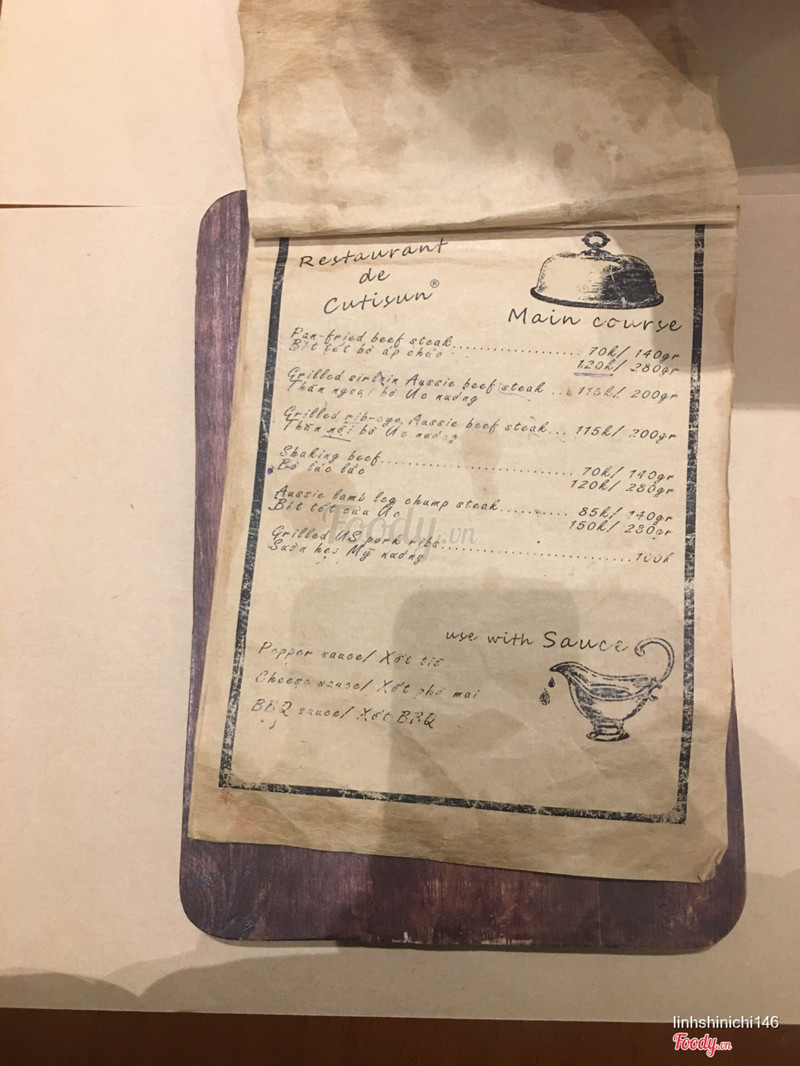 Restaurant
de
Cutisun®
Main course
Pan-fried beef steak.................... 70k/ 140gr
Bít tết bò áp chảo 120k/ 280gr
Grilled sirloin Aussie beef steak ... 115k/ 200gr
Thăn ngoại bò Úc nướng
Grilled rib-eye Aussie beef steak... 115k/ 200gr
Thăn nội bò Úc nướng
Shaking beef.............................. 70k/ 140gr
Bò lúc lắc 120k/ 280gr
Aussie lamb leg chump steak.......... 85k/ 140gr
Bít tết cừu Úc 150k/ 280gr
Grilled US pork ribs.............................
Sườn heo Mỹ nướng
use with Sauce
Pepper sauce/ Xốt tiê
Cheese sauce/ Xốt phô mai
BBQ sauce/ Xốt BBQ
Foody.vn
linhshinichi146
Foody.vn